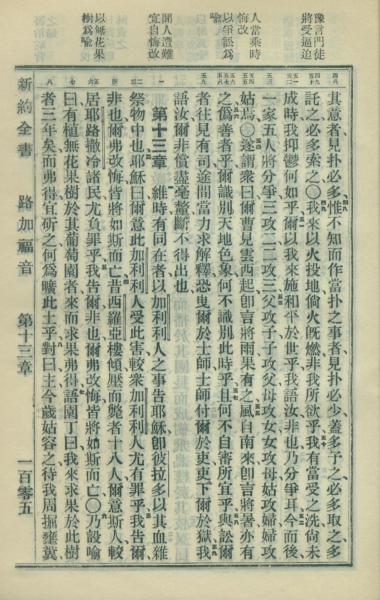 豫言門徒
將受逼迫
人當乘時
悔改
以爭訟爲
喻
聞人遭難
宜自悔改
以無花果
樹爲喻
其意者見扑必多惟不知而作當扑之事者見扑必少蓋多予之必多取之多
託之必多索之〇我來以火投地倘火旣燃非我所欲乎我有當受之洗尚未
成時我抑鬱何如乎爾以我來施和平於世乎我語汝非也乃分爭耳今而後
一家五人將分爭三攻二二攻三父攻子子攻父母攻女女攻母姑攻婦婦攻
姑焉〇遂謂衆曰爾曹見雲西起卽言將雨果有之風自南來卽言將暑亦有
之僞善者乎爾識別天地色象何不識別此時乎且何不自審所宜乎與訟爾
者往見有司途間當力求解釋恐曳爾於士師士師付爾於吏吏下爾於獄我
語汝爾非償盡毫釐斷不得出也
第十三章 維時有同在者以加利利人之事告耶穌卽彼拉多以其血雜
祭物中也耶穌曰爾意此加利利人受此害較衆加利利人尤有罪乎我告爾
非也爾弗改悔皆將如斯而亡昔西羅亞樓傾壓而斃者十八人爾意斯人較
居耶路撒冷諸民尤負罪乎我告爾非也爾弗改悔皆將如斯而亡〇乃設喻
曰有植無花果樹於其葡萄園者來而求果弗得語園丁曰我來求果於此樹
者三年矣而弗得宜斫之何爲曠此土乎對曰主今歲姑容之待我周掘壅糞
新約全書 路加福音 第十三章 一百零五